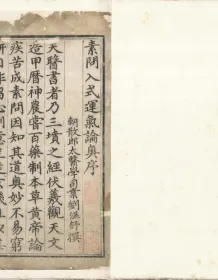 素問入式運氣論奥序
朝散郎太醫學司業劉温舒撰
夫醫書者乃三墳之經伏羲觀天文
造甲曆神農嘗百藥制本草黄帝論
疾苦成素問因知其道奥妙不易窮